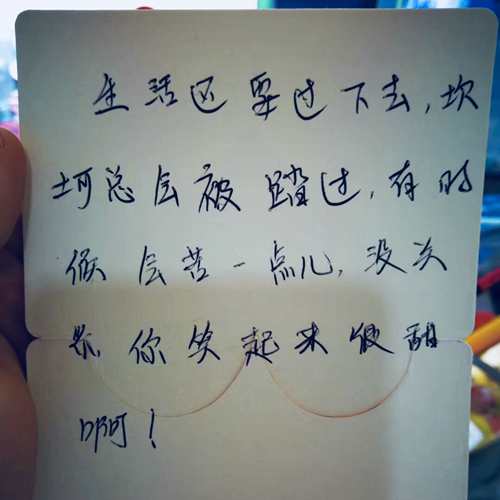 生活还要过下去，坎
坷总会被踏过，有时
候会苦一点儿，没关
系，你笑起来很甜
啊！